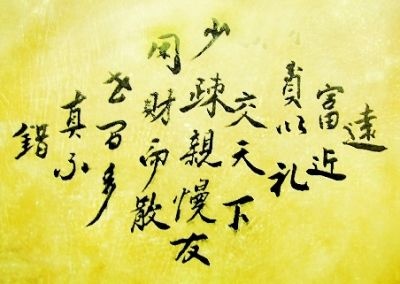 遠
富近
貴以礼
交天下
少疎親慢友
財而散
多
真不
錯